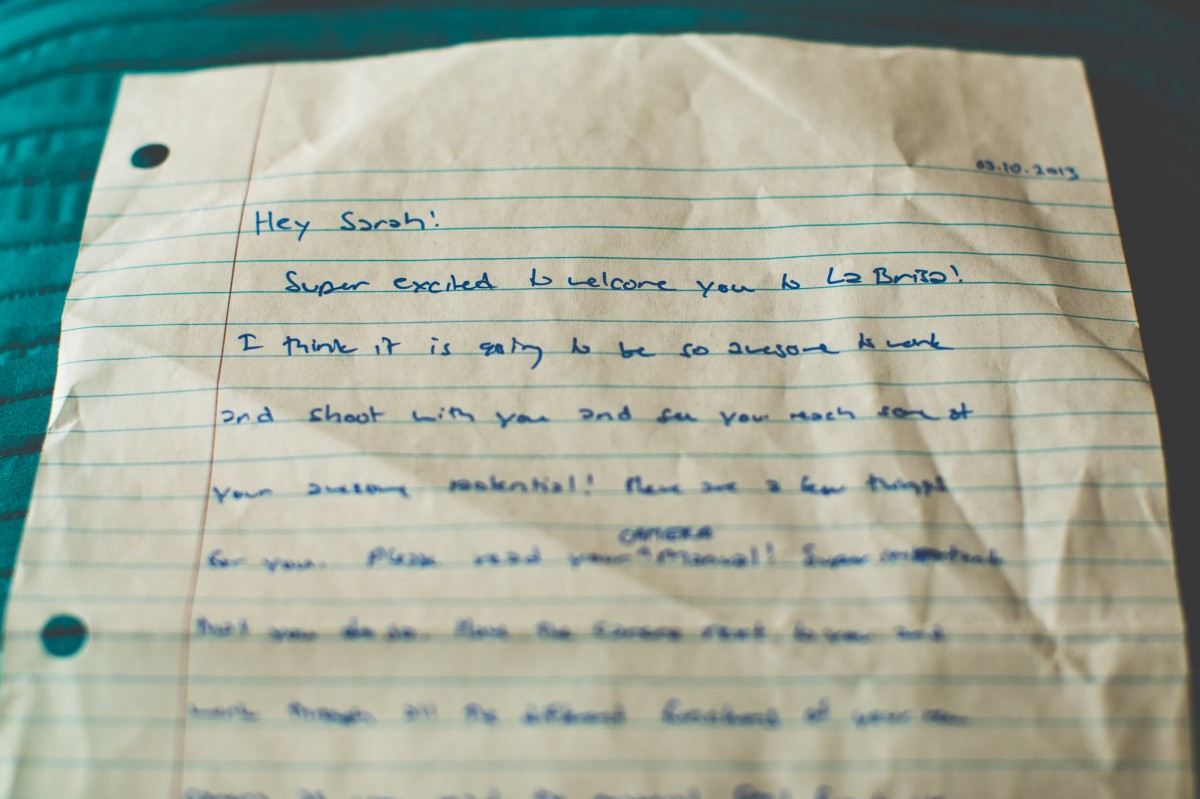 03.10.2013
Hey Sarah!
Super excited to welcome you to La Brisa!
I think it is going to be so awesome to work
and shoot with you and see you reach some of
your awesome potential! Here are a few things
CAMERA
for you. Please read your ^ Manual! Super important
that you do so. Have the camera next to you and
work through all the different functions of your